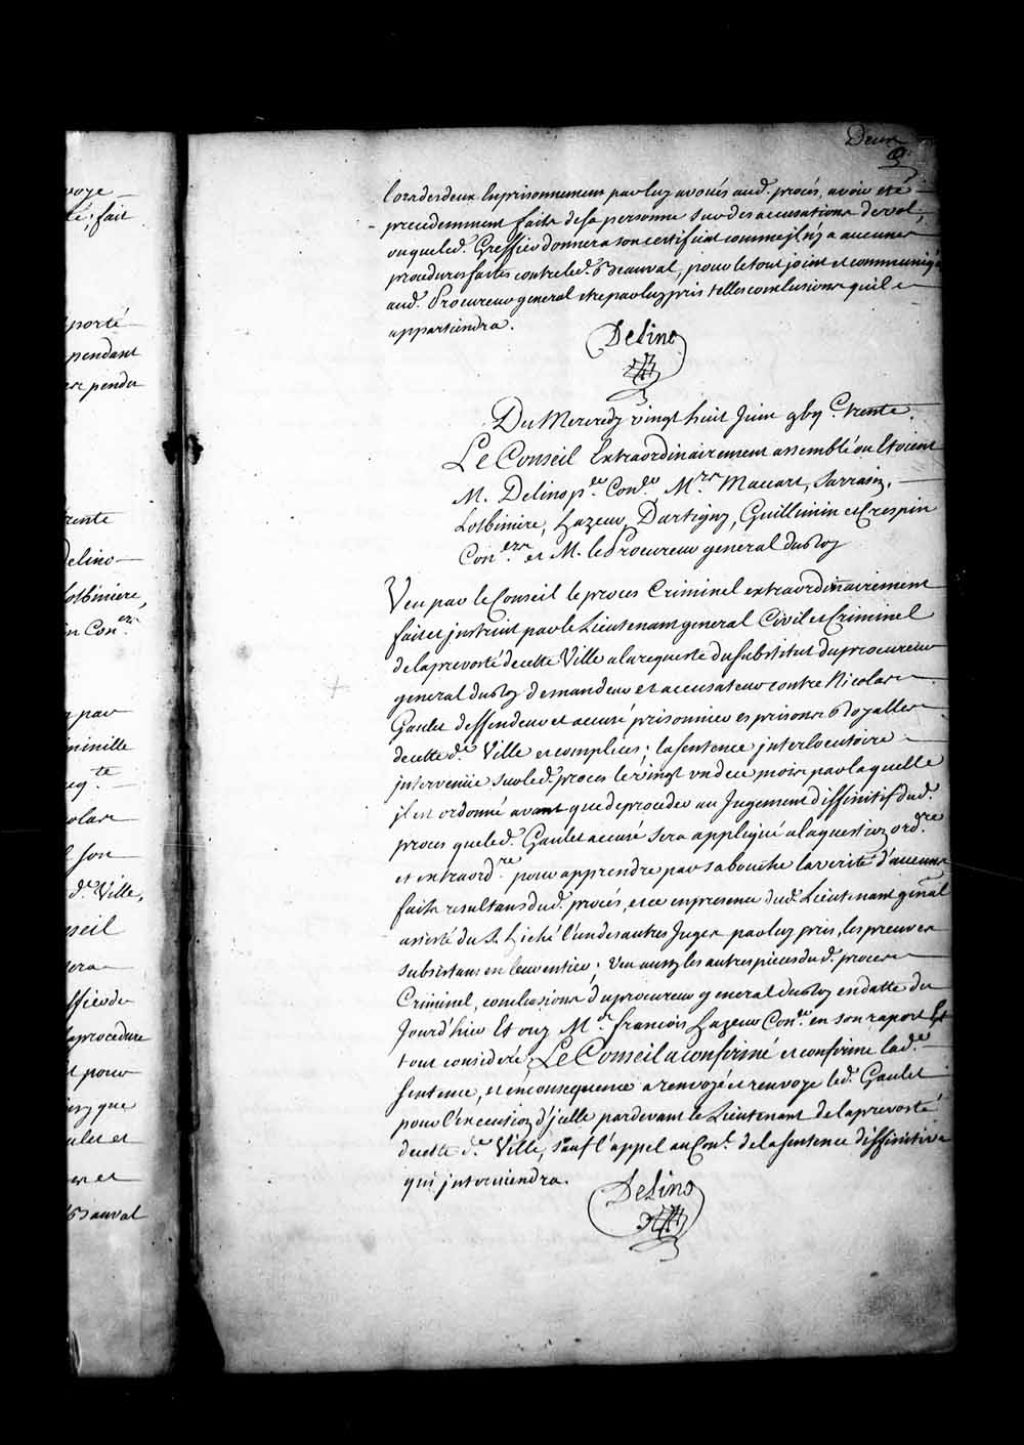 Deux
lors des deux Emprisonnemens par luy avoués aud. procés, avoir eté
precedemment faits de sa personne sur des accusations de vol,
ou que led. Greffier donnera son certificat comme jl n'y a aucunes
procedures faites contre led. Beauval, pour le tout joint et communiqué
aud. Procureur general etre par luy pris telles conclusions qu'il
appartiendra.
Delino
Du Mercredy vingt huit Juin gbij C. trente.
Le Conseil Extraordinairement assemblé ou Etoient
M. Delino p.er Con.er M.rs Macart, Sarrazin,
Lotbiniere, hazeur, Dartigny, Guillimin et Crespin
Con.ers et M. le Procureur general du Roy
Veu par le Conseil le procés Criminel extraordinairement
fait et jnstruit par le Lieutenant general Civil et Criminel
de la prevosté de cette Ville a la requeste du substitut du procureur
general du Roy demandeur et accusateur contre Nicolas
Gaulet deffendeur et accusé prisonnier es prisons Royalles
de cette d.e Ville et complices; la sentence jnterlocutoire
jntervenüe sur led. procés le vingt un de ce mois par laquelle
jl est ordonné avant que de proceder au Jugement diffinitif dud.
procés que led. Gaulet accusé sera appliqué a la question ord.re
et extraord.re pour apprendre par sa bouche la verité d'aucuns
faits resultans dud. procés, et ce en presence dud. Lieutenant gñal
assisté du S. hiché l'un des autres Juges par luy pris, les preuves
subsistans en leur entier; Veu aussy les autres pieces dud. procés
Criminel, conclusions du procureur general du Roy en datte du
Jourd'hier Et ouy M.r françois hazeur Con.er en son raport Et
tout consideré; Le Conseil a confirmé et confirme lad.e
sentence, et en consequence a renvoyé et renvoye led. Gaulet
pour l'execution d'jcelle pardevant le Lieutenant de la prevosté
de cette d.e Ville, sauf l'appel au Con.l de la sentence diffinitive
qui jnterviendra.
Delino
voye
té; fait
porté
pendant
pendu
trente
Delino
Lotbiniere,
Con.ers
par
son
d.e Ville,
seil
sera
procedure
pour
que
Gaulet et
et
Beauval